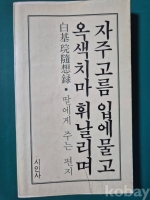 자주고름 입에물고
옥색치마 휘날리며
白基琓隨想録 • 딸에게 주는 편지
시인사
kobay